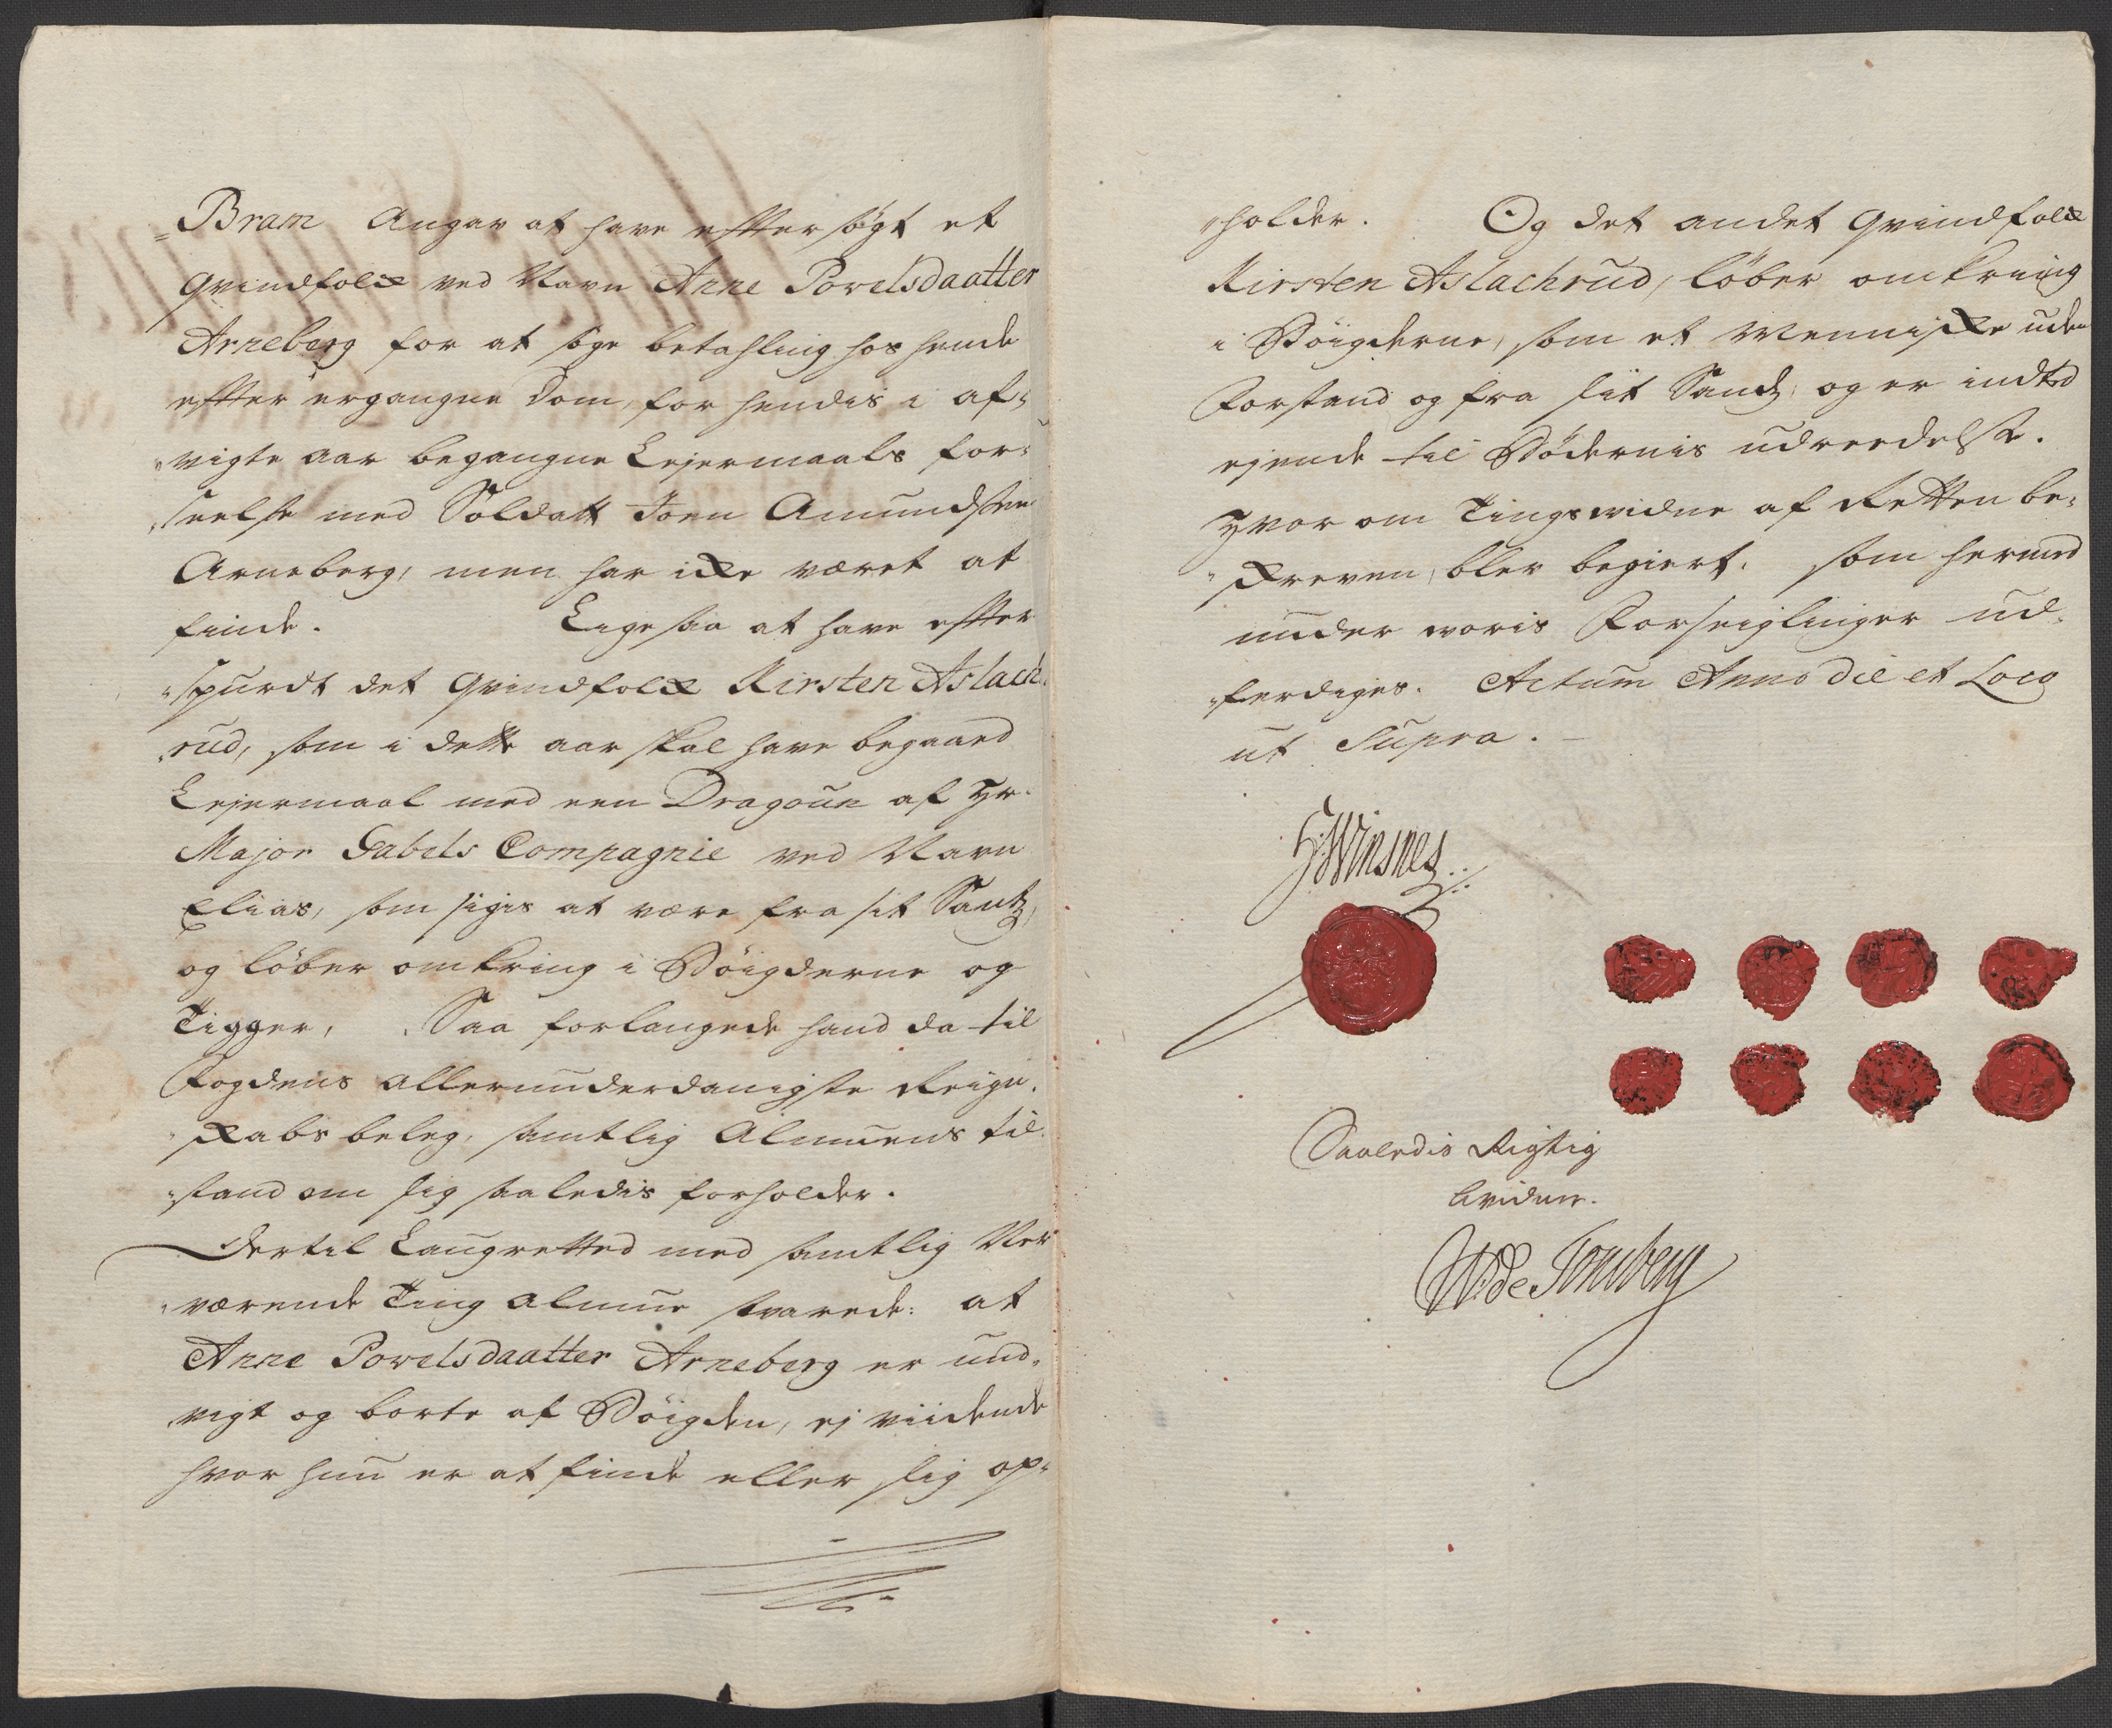 =Bram Angav at have efftersøgt et
Qvindfolk ved Navn Anne Povelsdaatter
Arneberg for at søge betahling hos hende
effter ergangne Dom, for hendis i af-
vigte aar begangne Lejermaals for-
seelse med Soldatt Joen Amundsen
Arneberg, men har ikke været at
finde. Ligesaa at have effter
spurdt det Qvindfolk Kirsten Aslach-
rud, som i dette aar skal have begaaed
Lejermaal med een Dragoun af Hr.
Major Gabels Compagnie ved Navn
Elias, som sigis at være fra sit Santz,
og løber omkring i Bøigderne og
Tigger, Saa forlangede hand da til
Fogdens allerunderdanigste Reign-
skabs beleg, samtlig Almuens til-
stand om sig saaledis forholder.
Dertil Laugretted med samtlig Ner
værende Ting Almue svarede: at
Anne Povelsdaatter Arneberg er und-
vigt og borte af Bøigden, ej viidende
hvor hun er at finde eller sig op-
holder. Og det andet Qvindfolk
Kirsten Aslachrud, løber omkring
i Bøigderne, som et Menniske uden
Forstand og fra sit Sandz, og er indted
ejende til Bødernis udreedelse.
Hvor om Tingsvidne af Retten be-
skreven, blev begiert. som hermed
under voris Forseiglinger ud-
ferdiges. Actum Anno Die et Loco
ut Supra.
H: Winsnes
Saaledis Rigtig
W: de Tonsberg